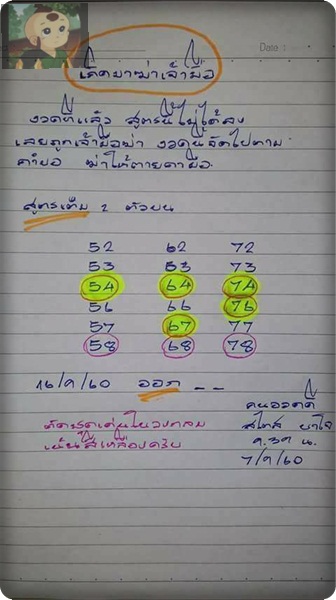 Date
เด็ดมาฆ่าเจ้ามือ
งวดที่แล้ว สูตรนี้ไม่ได้ลง
เลยถูกเจ้ามือฆ่า งวดนี้จัดไปตาม
คำขอ ฆ่าให้ตายคามือ
สูตรเต็ม 2 ตัวบน
52 62 72
53 53 73
54 64 74
56 66 76
57 67 77
58 68 78
16/9/60 ออก _ _
คนอวดดี
สไตล์
9.39 น.
7/9/60
คัดชุดเด่นในวงกลม
เน้นสีเหลืองครับ